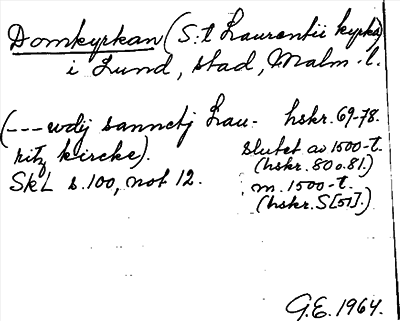 Domkyrkan (S:t Laurentii kyrka)
i Lund, stad, Malm. l.
(---wdij sannctj Lau-
ritz kircke).
SkL s.100, not 12.
hskr. 69-78.
slutet av 1500-t.
(hskr. 80 o. 81.)
m. 1500-t.
(hskr. S[51].)
G.E. 1964.